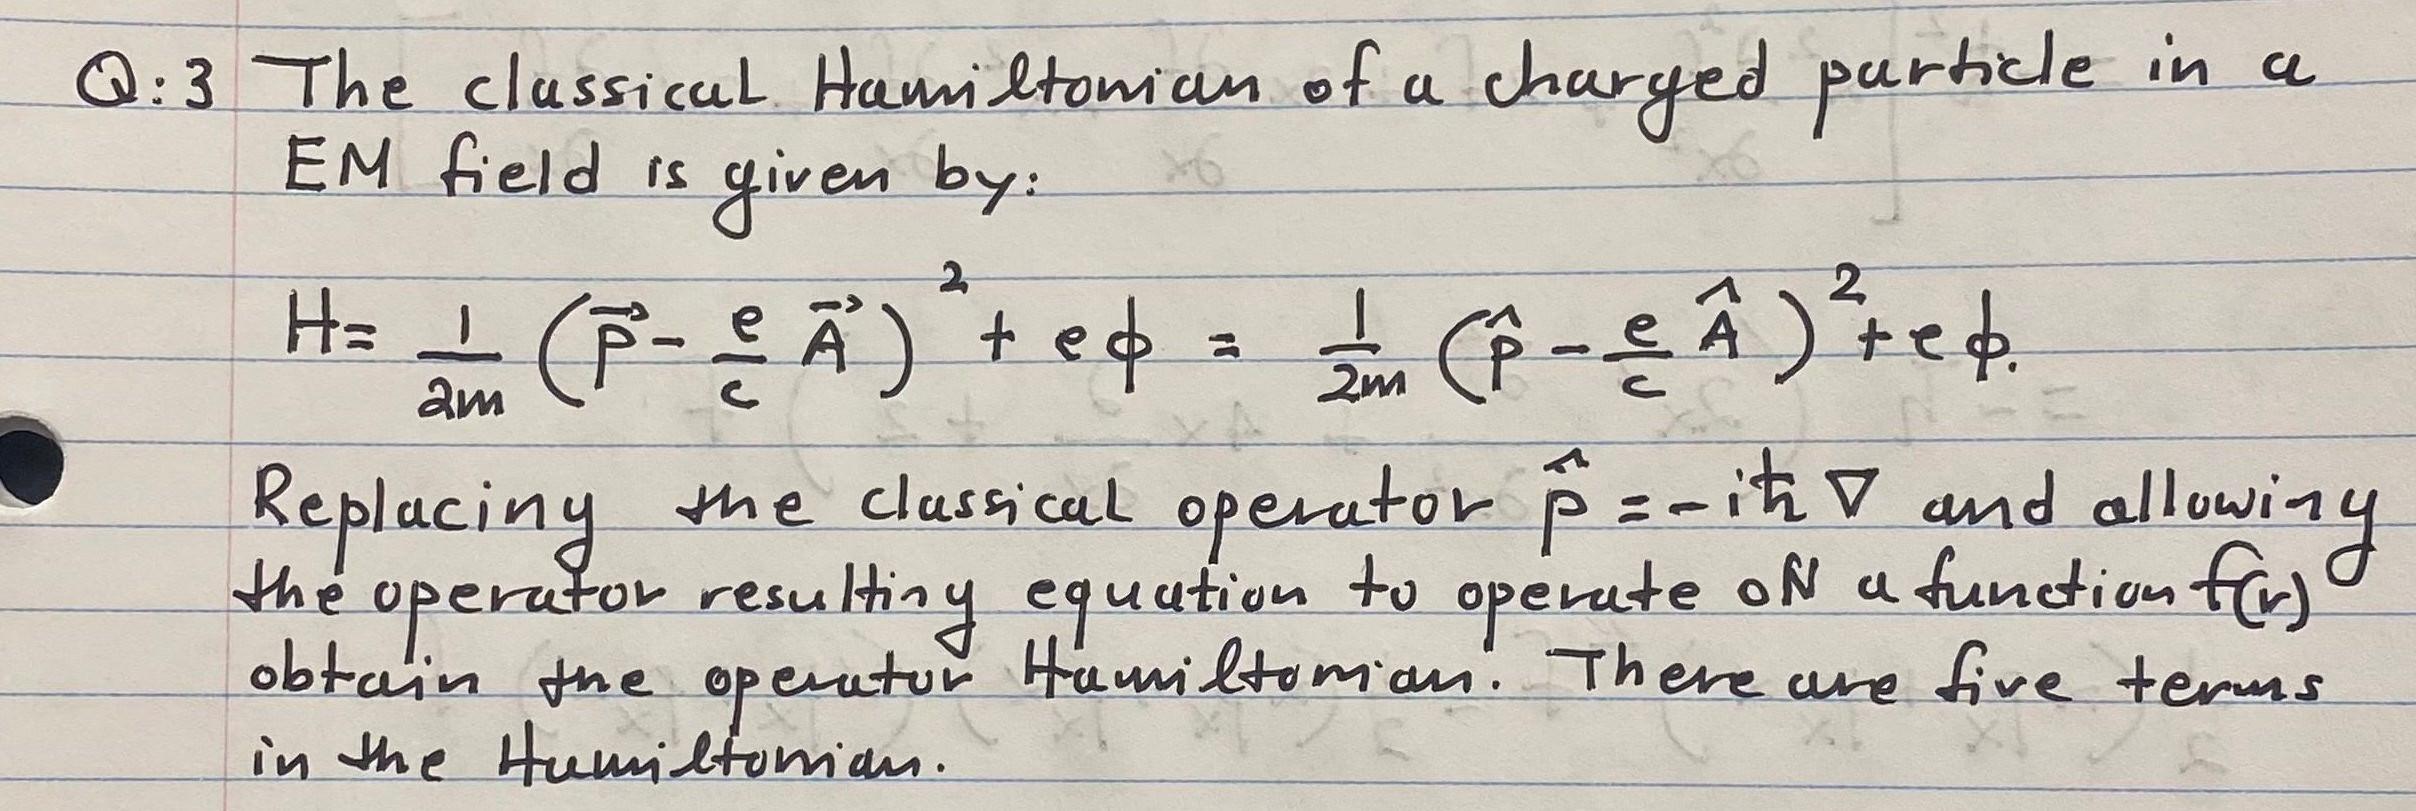 Q:3 The classical Hamiltonian of a charged particle in a
EM field is given by:
H= 1/2m (p⃗ - e/c A⃗)² + eϕ = 1/2m (p̂ - e/c Â)² + eϕ.
Replacing the classical operator p̂ = -iħ∇ and allowing
the operator resulting equation to operate oN a function f(r)
obtain the operator Hamiltonian. There are five terms
in the Hamiltonian.